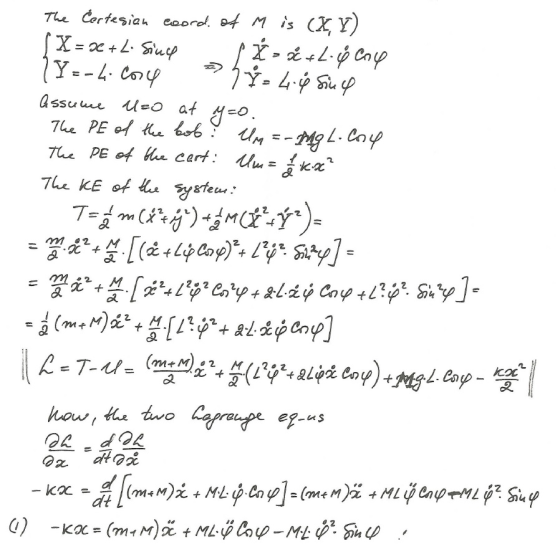 The Cartesian coord. of M is (X, Y)
{ X = x + L· Sinφ
Y = -L· Cosφ ⇒ { Ẋ = ẋ + L·φ̇ Cosφ
Ẏ = L·φ̇ Sinφ
Assume U=0 at y=0.
The PE of the bob: U_M = -MgL·Cosφ
The PE of the cart: U_m = 1/2 kx²
The KE of the system:
T = 1/2 m(ẋ²+ẏ²) + 1/2 M(Ẋ²+Ẏ²) =
= m/2·ẋ² + M/2·[(ẋ+Lφ̇ Cosφ)² + L²φ̇²·Sin²φ] =
= m/2 ẋ² + M/2·[ẋ²+L²φ̇² Cos²φ + 2·L·ẋφ̇ Cosφ + L²·φ̇²·Sin²φ] =
= 1/2 (m+M)ẋ² + M/2·[L²·φ̇² + 2L·ẋφ̇ Cosφ]
‖ L = T-U = (m+M)/2 ẋ² + M/2 (L²φ̇²+2Lφ̇ẋ Cosφ) + Mg·L·Cosφ - kx²/2 ‖
Now, the two Lagrange eq-ns
∂L/∂x = d/dt ∂L/∂ẋ
-kx = d/dt [(m+M)ẋ + M·L·φ̇·Cosφ] = (m+M)ẍ + MLφ̈ Cosφ - MLφ̇²·Sinφ
(1) -kx = (m+M)ẍ + ML·φ̈ Cosφ - M·L·φ̇²·Sinφ ;